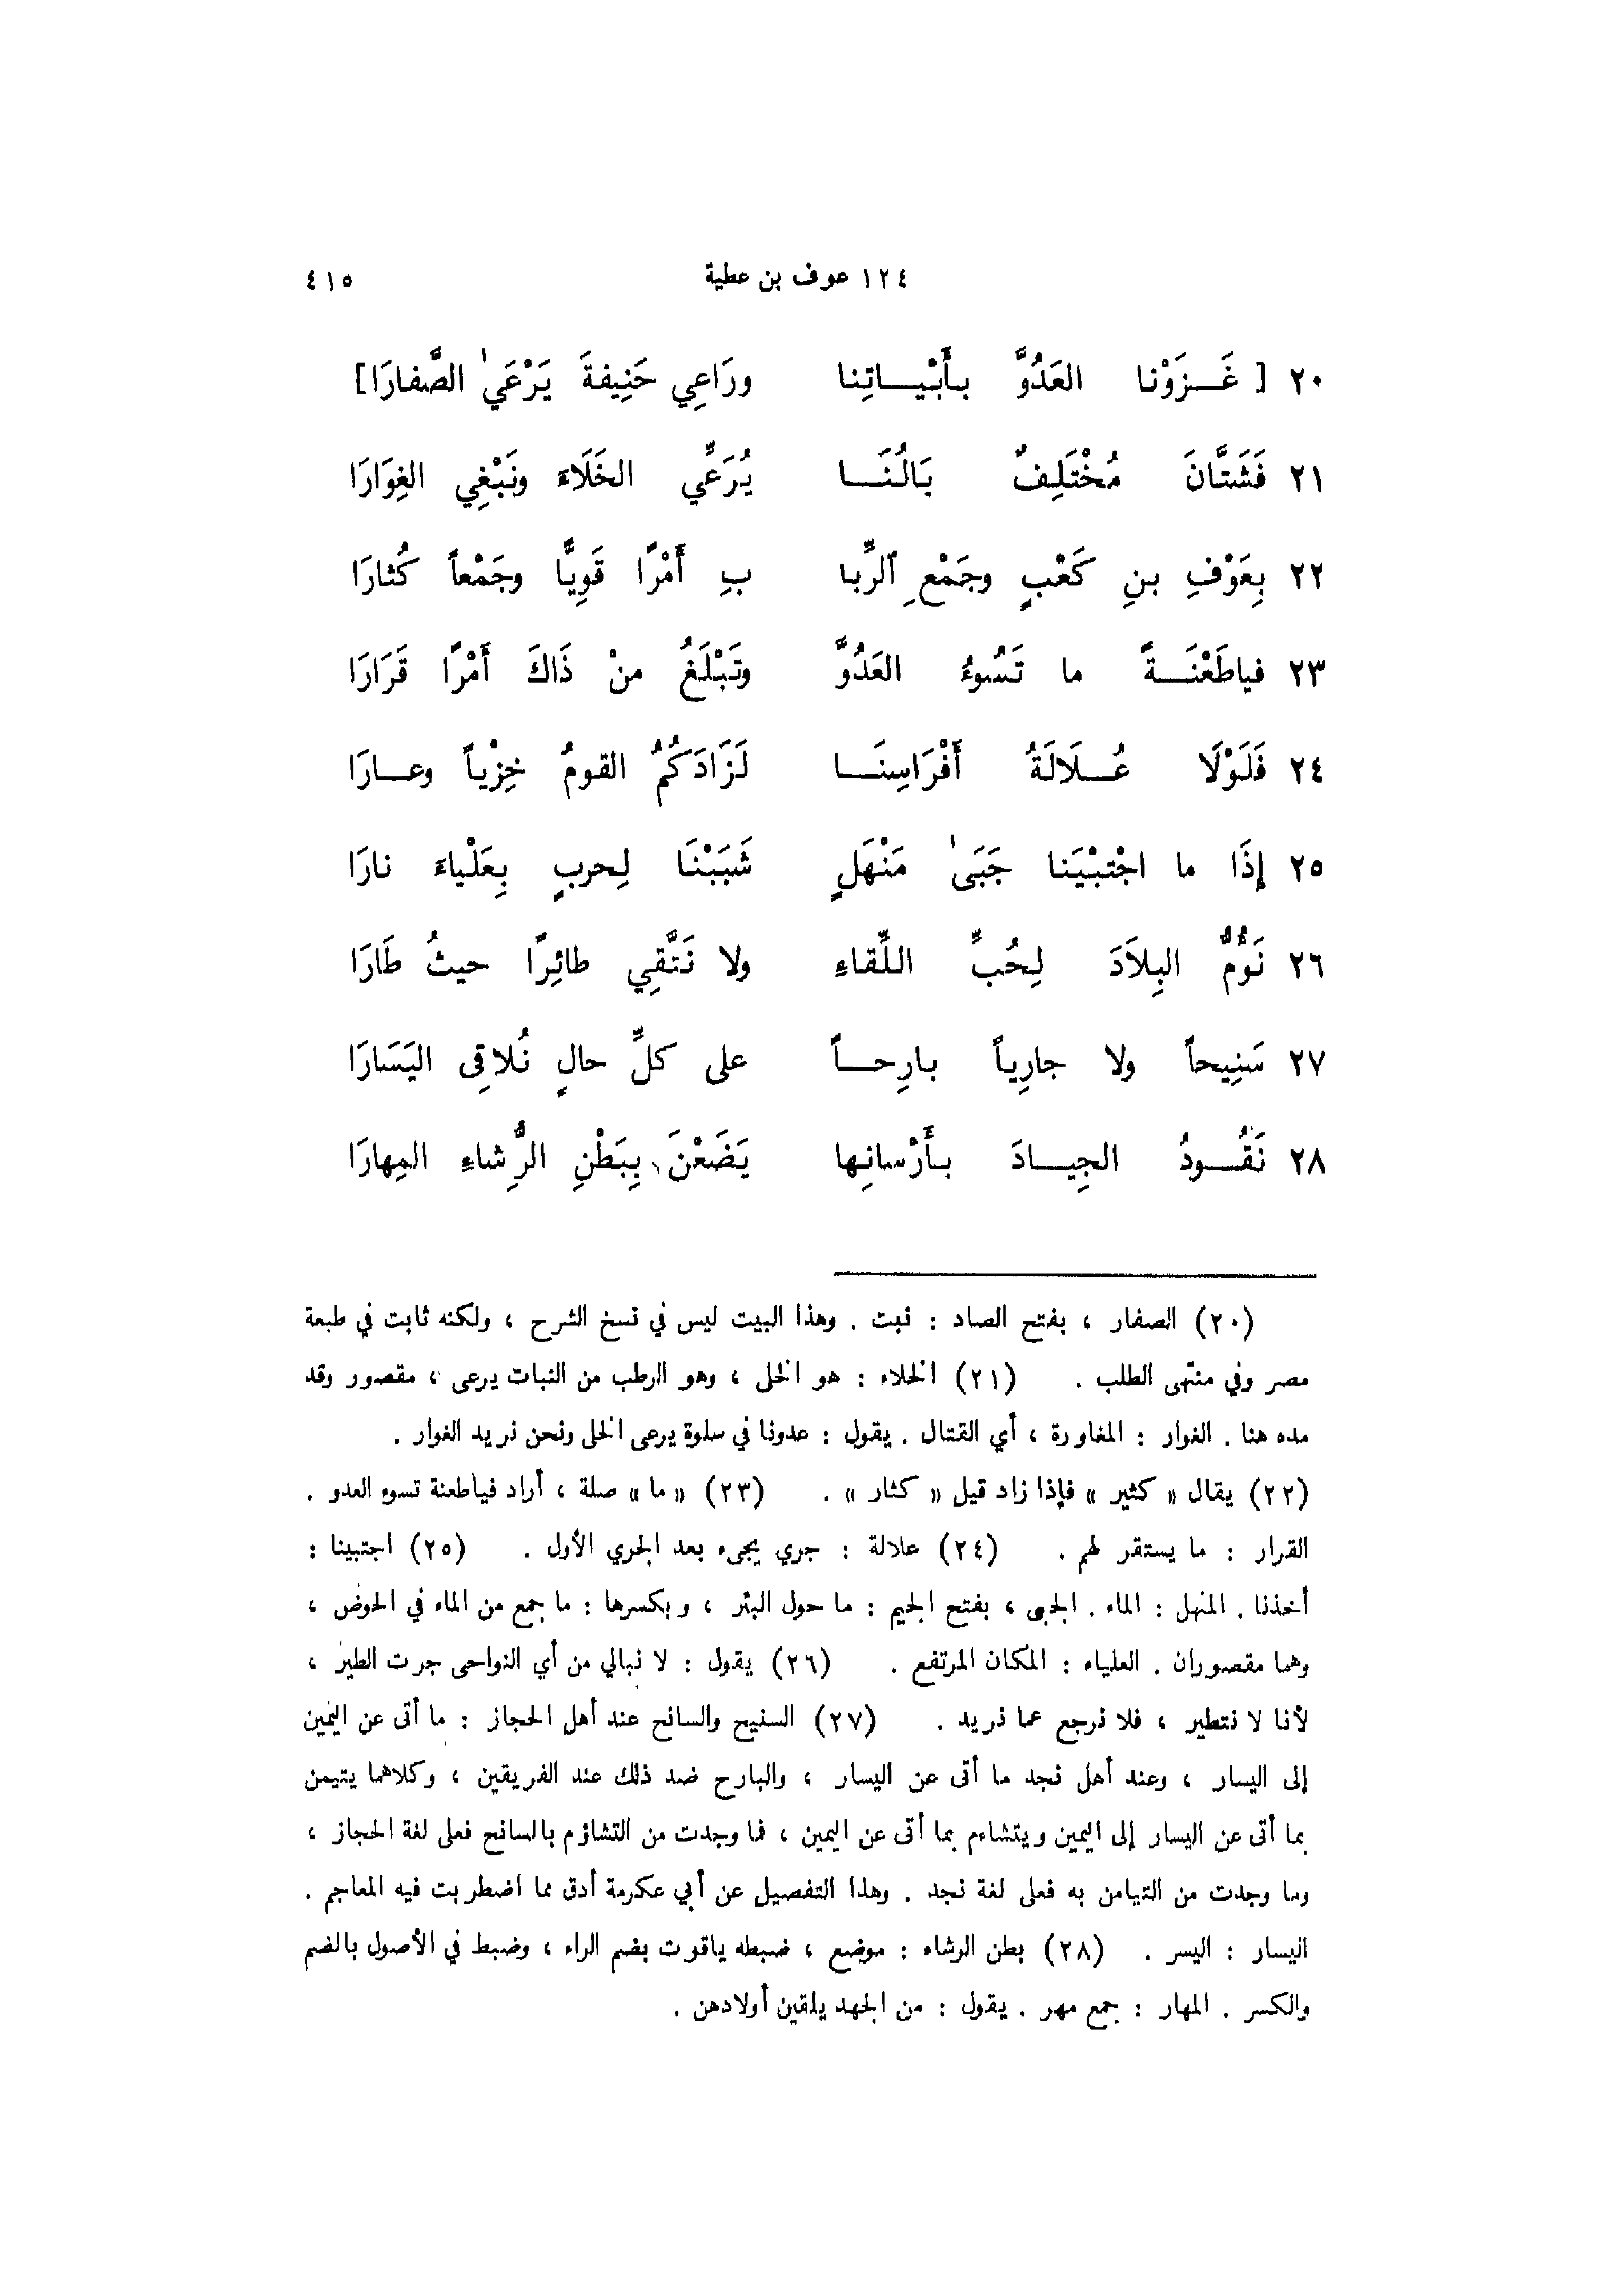 ١٢٤ عوف بن عطية ٤١٥
٢٠ [ غَـزَوْنا العَدُوَّ بأَبْيـاتِنا ورَاعِي حَنِيفةَ يَرْعَىٰ الصَّفارَا]
٢١ فَشَتَّانَ مُخْتَلِفٌ بَالُنَـا يُرَعِّي الخَلَاءَ ونَبْغِي الغِوَارَا
٢٢ بِعَوْفِ بنِ كَعْبٍ وجَمْعِ ٱلرِّبا بِ أَمْرًا قَوِيًّا وجَمْعاً كُثارَا
٢٣ فياطَعْنَـةً ما تَسُوءُ العَدُوَّ وتَبْلَغُ منْ ذَاكَ أَمْرًا قَرَارَا
٢٤ فَلَوْلَا عُـلَالَةُ أَفْرَاسِنَـا لَزَادَكُمُ القومُ خِزْياً وعـارَا
٢٥ إِذَا ما اجْتبْيَنا جَبَىٰ مَنْهَلٍ شَبَبْنَا لِحربٍ بِعَلْياءَ نارَا
٢٦ نَؤُمُّ البِلاَدَ لِحُبِّ اللِّقاءِ ولا نَتَّقِي طائِرًا حيثُ طَارَا
٢٧ سَنِيحاً ولا جارِياً بارِحـاً على كلِّ حالٍ نُلاقِى اليَسَارَا
٢٨ نَقُـودُ الجِيـادَ بأَرْسانِها يَضَعْنَ بِبَطْنِ الرُِّشاءِ المِهارَا
(٢٠) الصفار ، بفتح الصاد : نبت . وهذا البيت ليس في نسخ الشرح ، ولكنه ثابت في طبعة
مصر وفي منتهى الطلب . (٢١) الخلاء : هو الخلى ، وهو الرطب من النبات يرعى ، مقصور وقد
مده هنا . الغوار : المغاورة ، أي القتال . يقول : عدونا في سلوة يرعى الخلى ونحن نريد الغوار .
(٢٢) يقال « كثير » فإذا زاد قيل « كثار » . (٢٣) « ما » صلة ، أراد فياطعنة تسوء العدو .
القرار : ما يستقر لهم . (٢٤) علالة : جري يجىء بعد الجري الأول . (٢٥) اجتبينا :
أخذنا . المنهل : الماء . الجبى ، بفتح الجيم : ما حول البئر ، وبكسرها : ما جمع من الماء في الحوض ،
وهما مقصوران . العلياء : المكان المرتفع . (٢٦) يقول : لا نبالي من أي النواحى جرت الطير ،
لأنا لا نتطير ، فلا نرجع عما نريد . (٢٧) السنيح والسانح عند أهل الحجاز : ما أتى عن اليمين
إلى اليسار ، وعند أهل نجد ما أتى عن اليسار ، والبارح ضد ذلك عند الفريقين ، وكلاهما يتيمن
بما أتى عن اليسار إلى اليمين ويتشاءم بما أتى عن اليمين ، فما وجدت من التشاؤم بالسانح فعلى لغة الحجاز ،
وما وجدت من التيامن به فعلى لغة نجد . وهذا التفصيل عن أبي عكرمة أدق مما اضطربت فيه المعاجم .
اليسار : اليسر . (٢٨) بطن الرشاء : موضع ، ضبطه ياقوت بضم الراء ، وضبط في الأصول بالضم
والكسر . المهار : جمع مهر . يقول : من الجهد يلقين أولادهن .